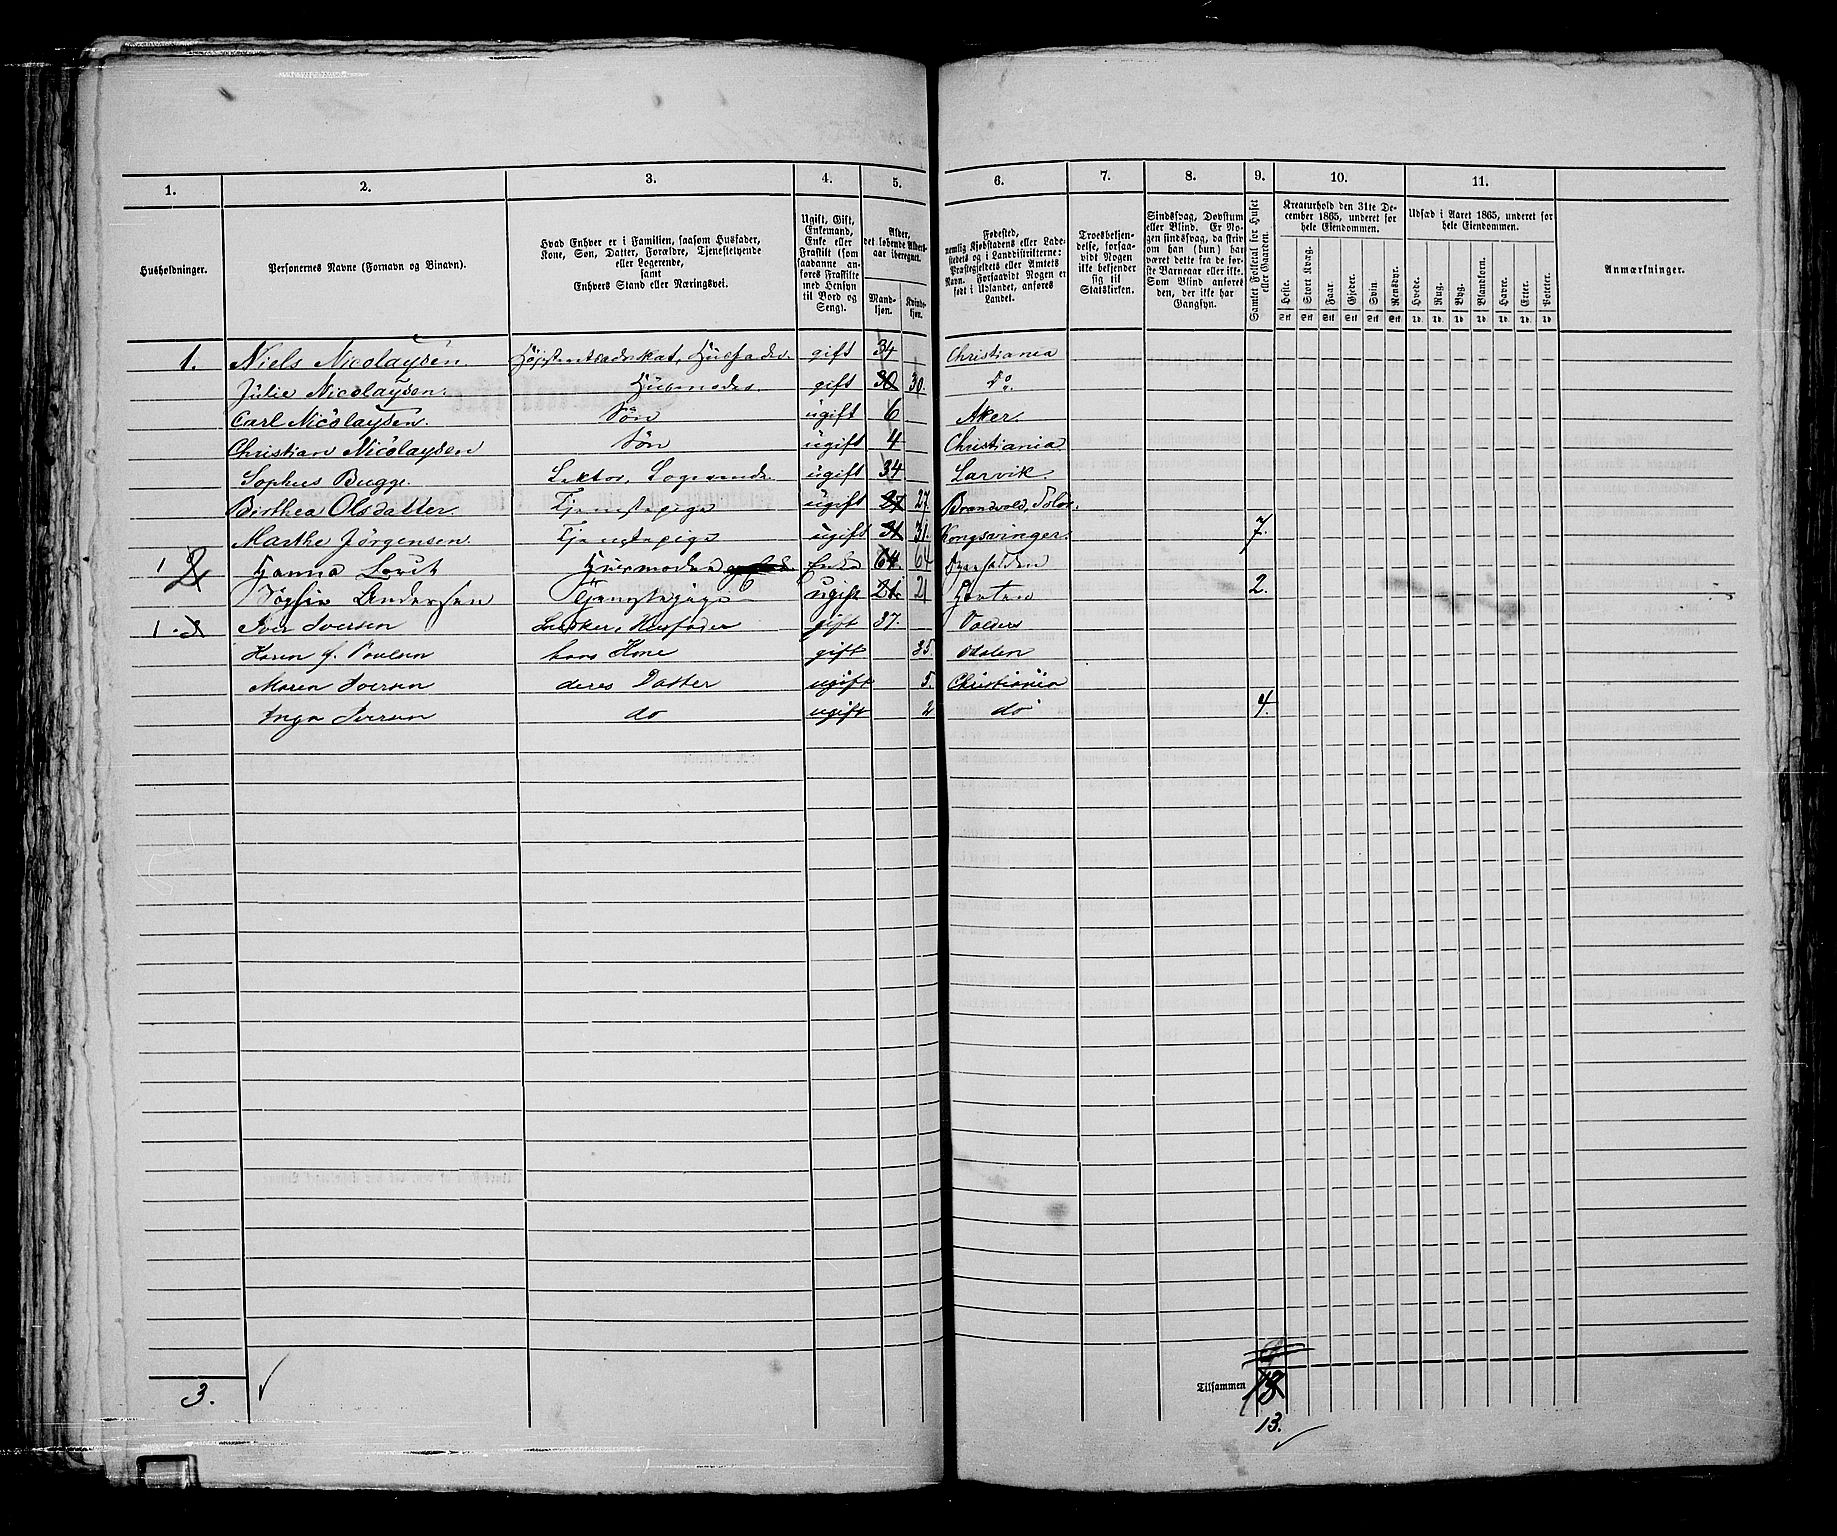 1. 2. 3. 4. 5. 6. 7. 8. 9. 10. 11.
Husholdninger.
Personernes Navne (Fornavn og Binavn).
Hvad Enhver er i Familien, saasom Husfader,
Kone, Søn, Datter, Forældre, Tjenestetyende
eller Logerende,
samt
Enhvers Stand eller Næringsvei.
Ugift, Gift,
Enkemand,
Enke eller
Fraskilt (som
saadanne an-
føres Fraskilte
med Hensyn
til Bord og
Seng).
Alder,
det løbende Alders-
aar iberegnet.
Mand-
kjøn.
Kvinde-
kjøn.
Fødested,
nemlig Kjøbstadens eller Lade-
stedets og i Landdistrikterne:
Præstegjeldets eller Amtets
Navn. Forsaavidt Nogen er
født i Udlandet, anføres
Landet.
Troesbekjen-
delse, forsaa-
vidt Nogen
ikke bekjender
sig til
Statskirken.
Sindssvag, Døvstum
eller Blind. Er No-
gen sindssvag, da skriv
om han (hun) har
været dette fra de før-
ste Barneaar eller ikke.
Som Blind anføres
den, der ikke har
Gangsyn.
Samlet Folketal for Huset
eller Gaarden.
Kreaturhold den 31te De-
cember 1865, underet for
hele Eiendommen.
Heste. Stort Kvæg. Faar. Gjeder. Svin. Rensdyr.
Udsæd i Aaret 1865, underet for
hele Eiendommen.
Hvede. Rug. Byg. Blandkorn. Havre. Erter. Poteter.
Anmærkninger.
1. Niels Nicolaysen Høiesteretsadvokat, Husfader. gift 34 Christiania
Julie Nicolaysen. Husmoder. gift 30 30. Do.
Carl Nicolaysen. Søn ugift 6 Aker.
Christian Nicolaysen Søn ugift 4 Christiania
Sophus Bugge. Lektor, Logerende ugift 34 Larvik.
Berthea Olsdatter. Tjenestepige ugift 27 27. Brandvold, Solør.
Marthe Jørgensen. Tjenestepige ugift 31 31. Kongsvinger. 7.
1 2 Hanna Husmoder Enke 64. 64
Sophie Andersen Tjenestepige ugift 21 21 Horten 2.
1. 3 Iver Iversen Husfader gift 37. Valders
Karen Poulsen hans Kone gift 35. Odalen
Maren Iversen deres Datter ugift 5. Christiania
Inga Iversen do ugift 2 do 4.
3.
Tilsammen 13
13.